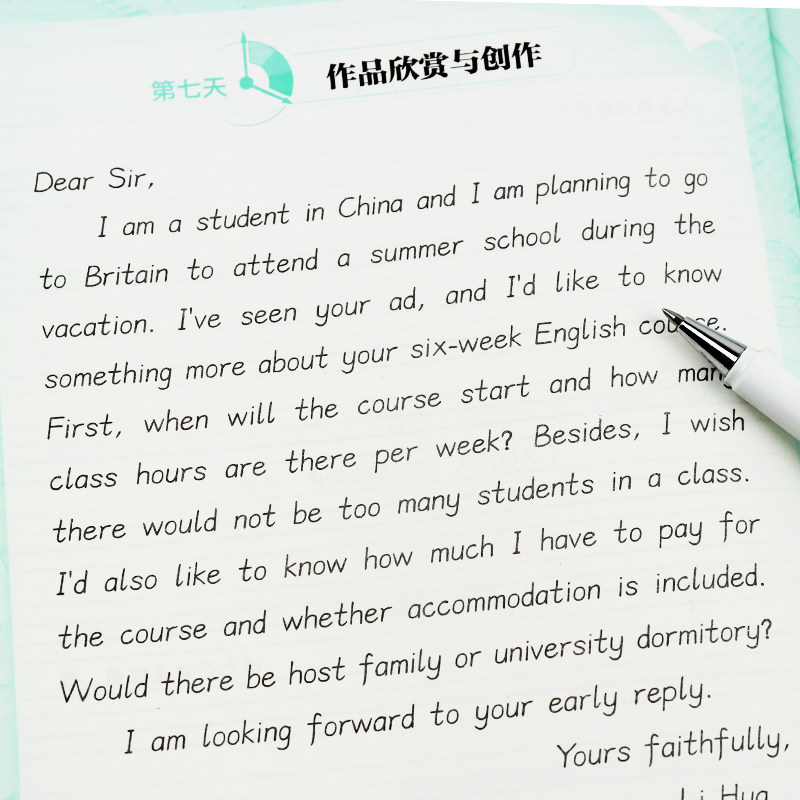 第七天
作品欣赏与创作
Dear Sir,
I am a student in China and I am planning to go
to Britain to attend a summer school during the
vacation. I've seen your ad, and I'd like to know
something more about your six-week English course.
First, when will the course start and how many
class hours are there per week? Besides, I wish
there would not be too many students in a class.
I'd also like to know how much I have to pay for
the course and whether accommodation is included.
Would there be host family or university dormitory?
I am looking forward to your early reply.
Yours faithfully,
Li Hua